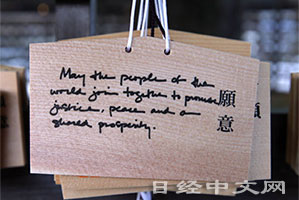 May the people of the
world join together to promote
justice, peace and our
shared prosperity.
願意
日经中文网